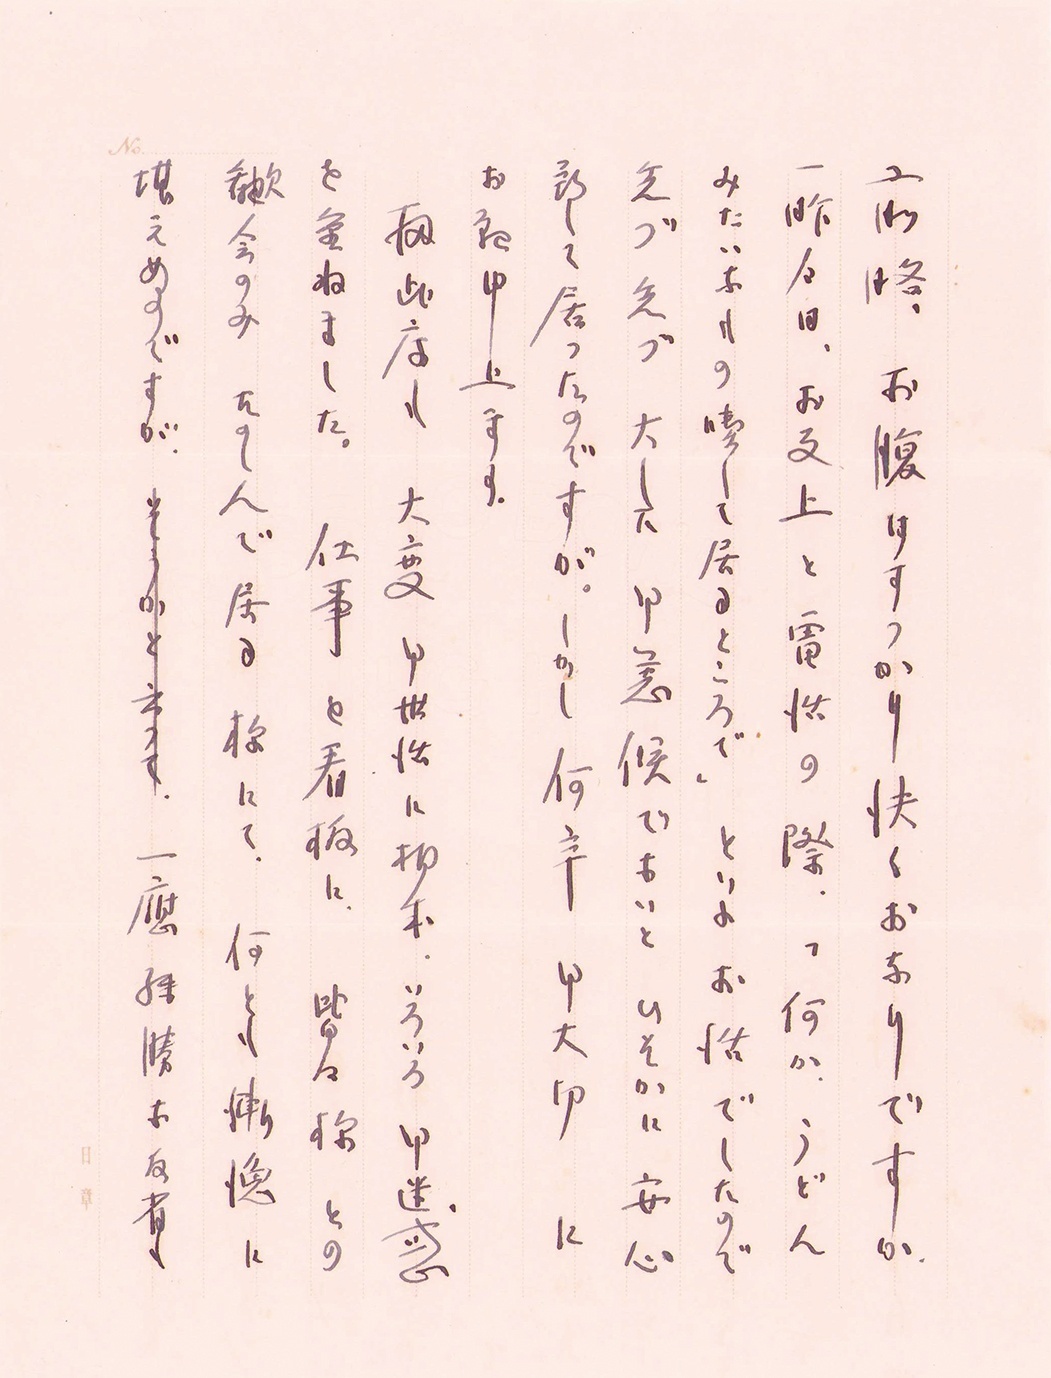 前略、お腹はすっかり快くおなりですか。
一昨々日、お文上と電話の際、「何か、うどん
みたいなもの喫して居るところで」といふお話でしたので
先づ先づ大した御容候でないと ひそかに安心
致して居ったのですが。しかし何卒 御大切に
お祈申上ます。
扨此度も 大変御世話に相成、いろいろ御迷惑
を重ねました。 仕事を看板に、皆々様との
歡会のみ たのしんで居る様にて、何とも慚愧に
堪えぬのですが、一應殊勝な反省も
No.
日